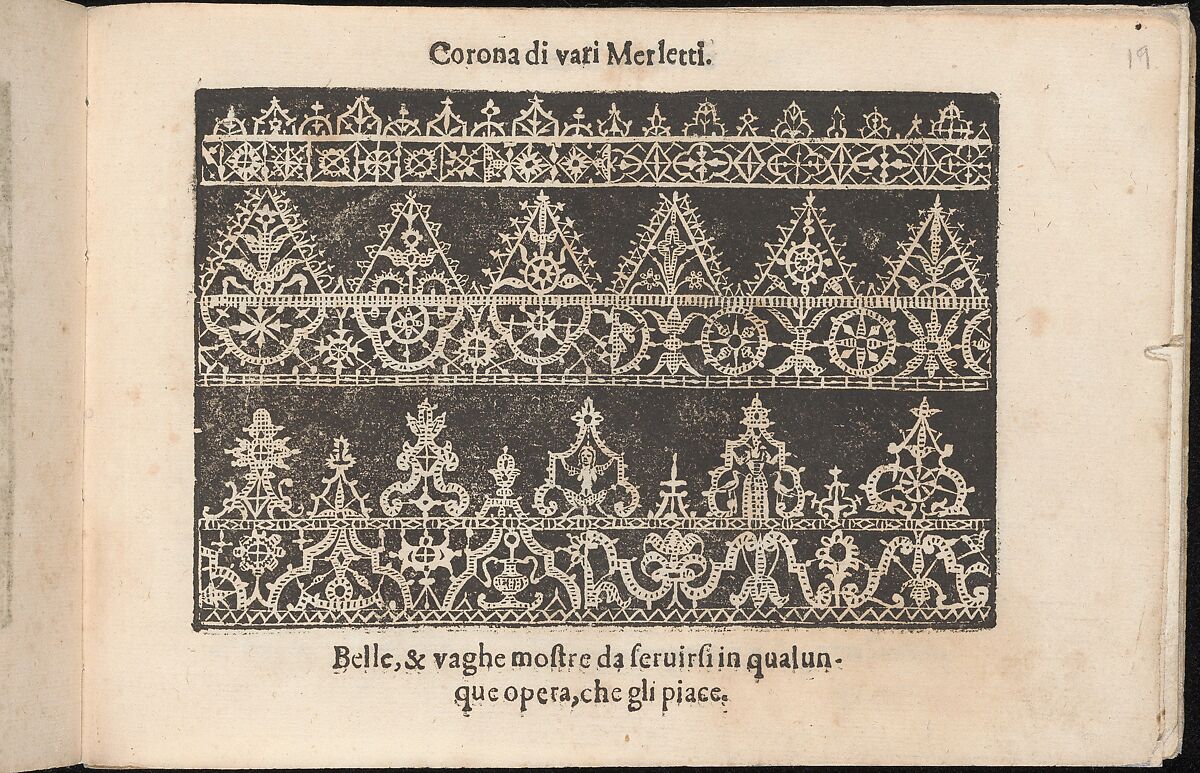 Corona di vari Merletti.
19
Belle, & vaghe moſtre da ſeruirſi in qualun-
que opera, che gli piace.